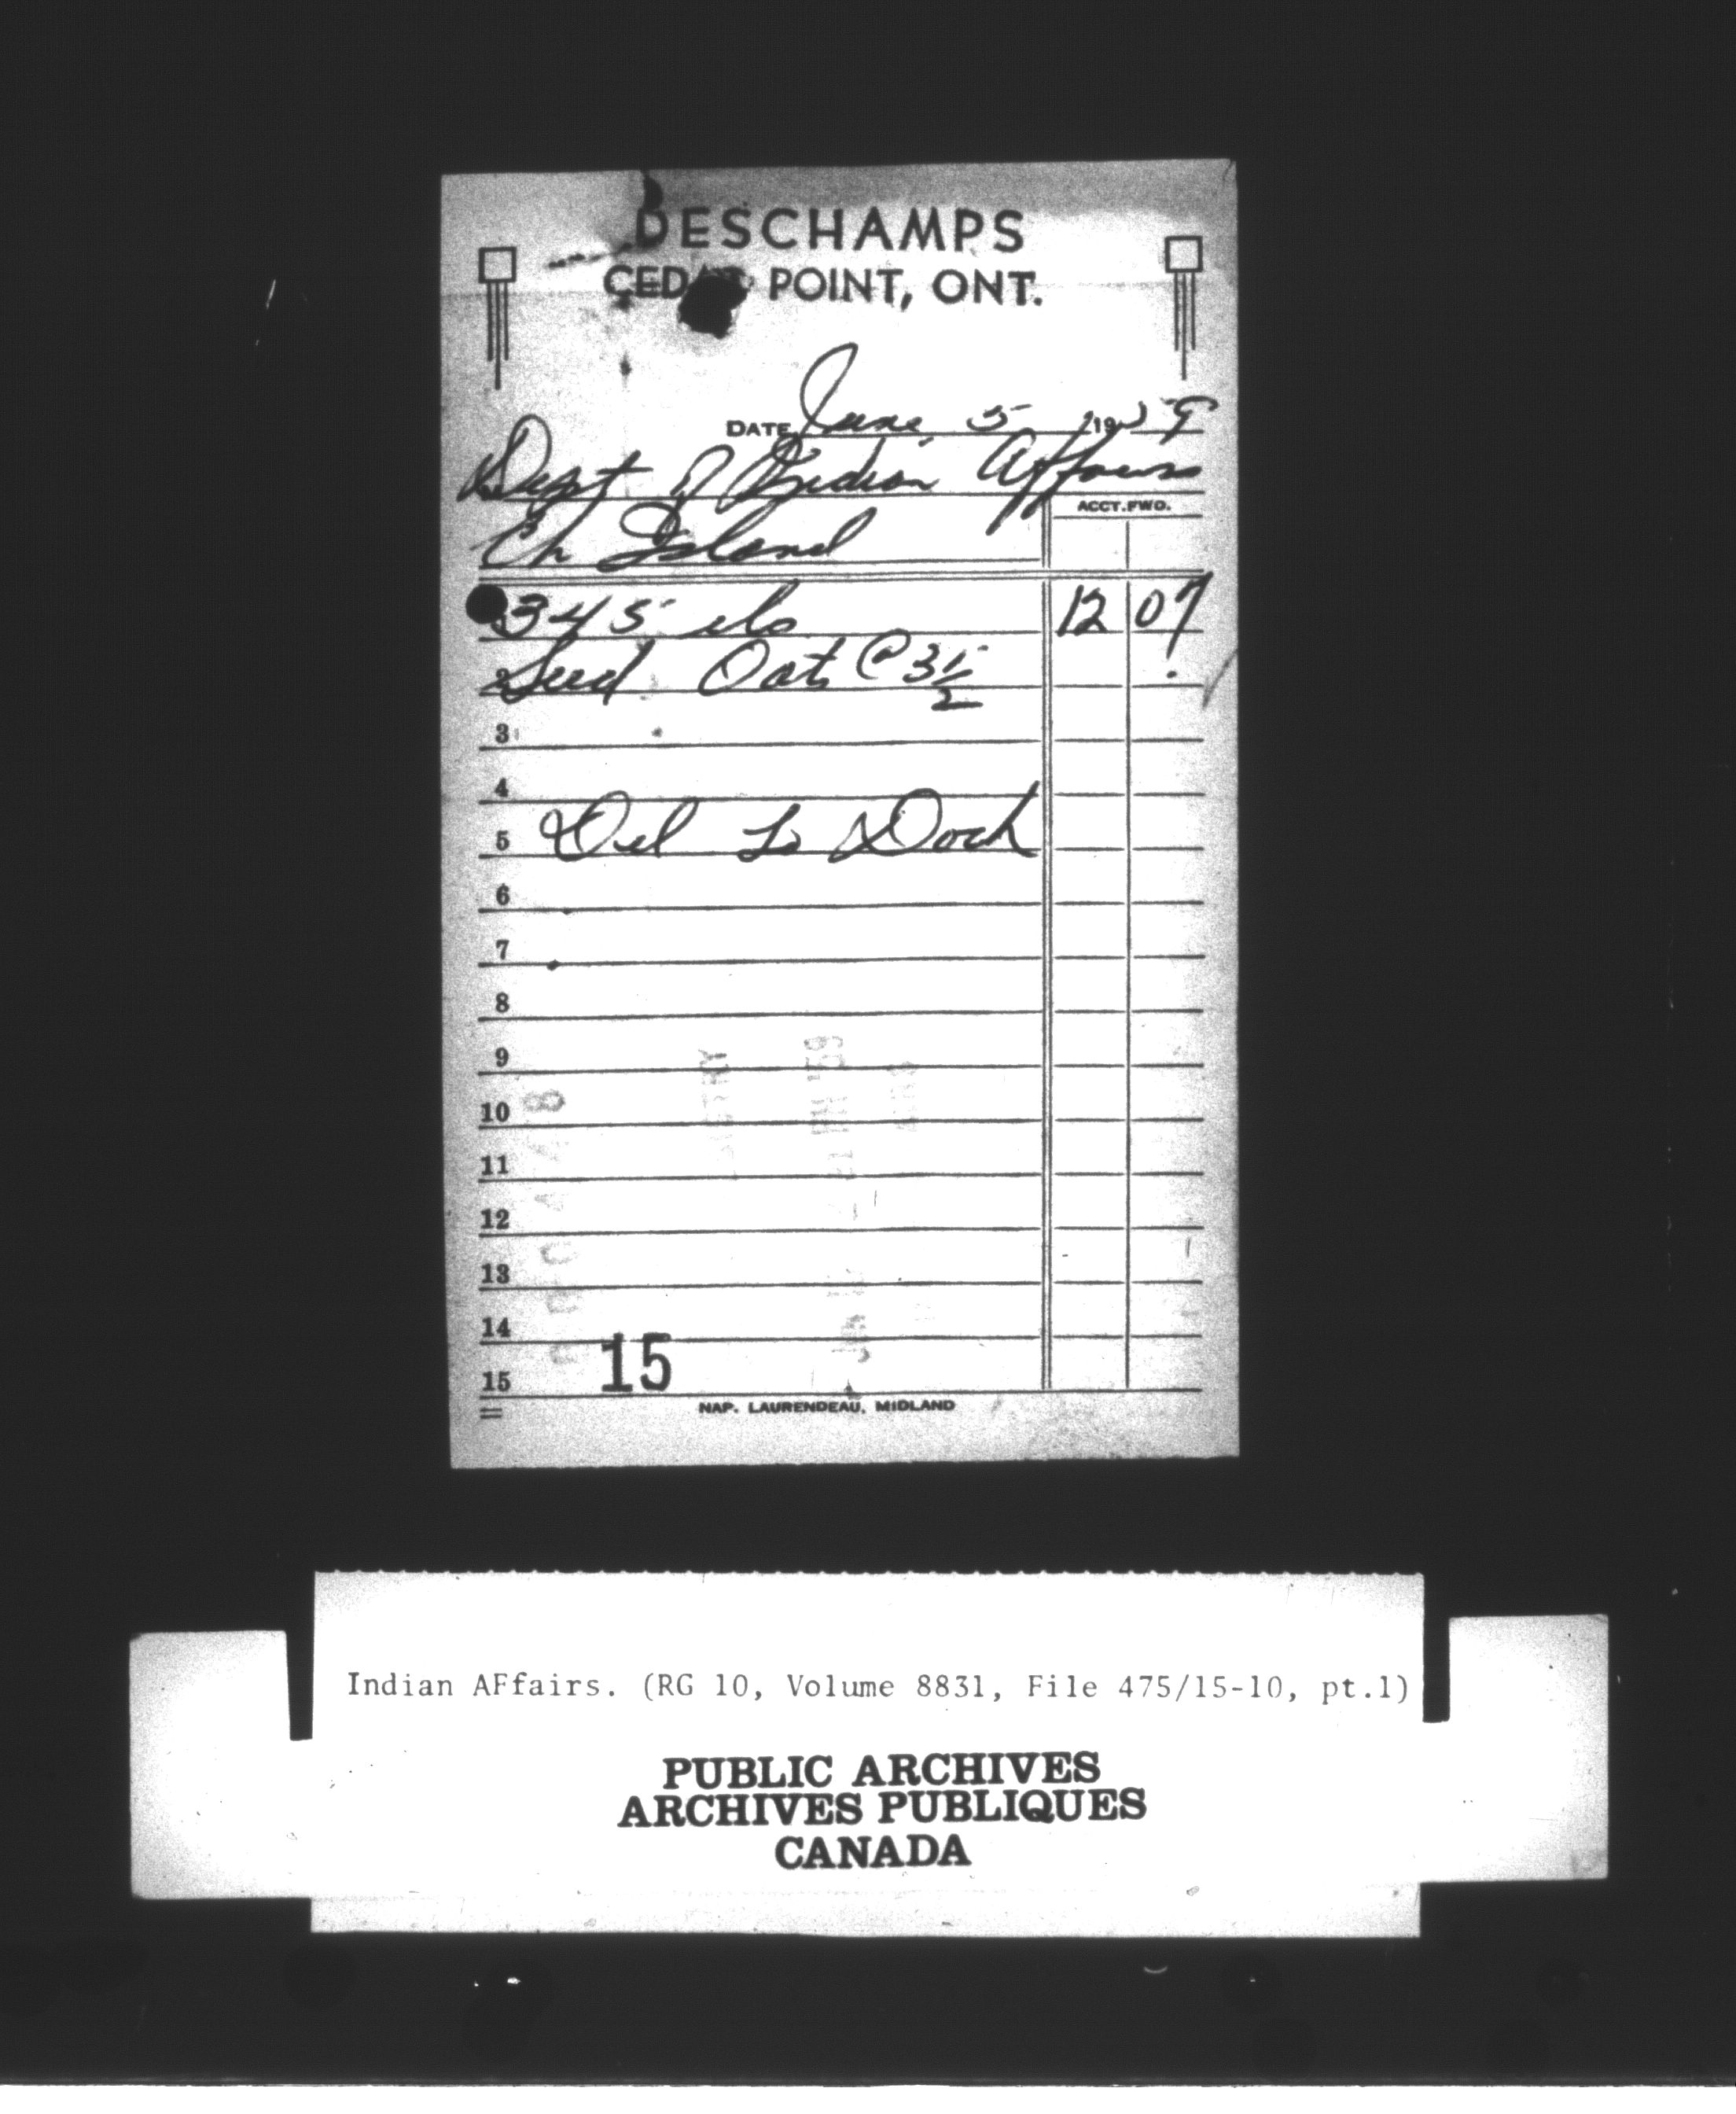 DESCHAMPS
CEDAR POINT, ONT.
DATE June 5 19
Dept of Indian Affairs
ACCT. FWD.
Ch Island
345 lbs 12 07
2 Seed Oats @ 3 1/2
3
4
5 Del to Dock
6
7
8
9
10
11
12
13
14
15 15
NAP. LAURENDEAU, MIDLAND
Indian AFfairs. (RG 10, Volume 8831, File 475/15-10, pt.1)
PUBLIC ARCHIVES
ARCHIVES PUBLIQUES
CANADA